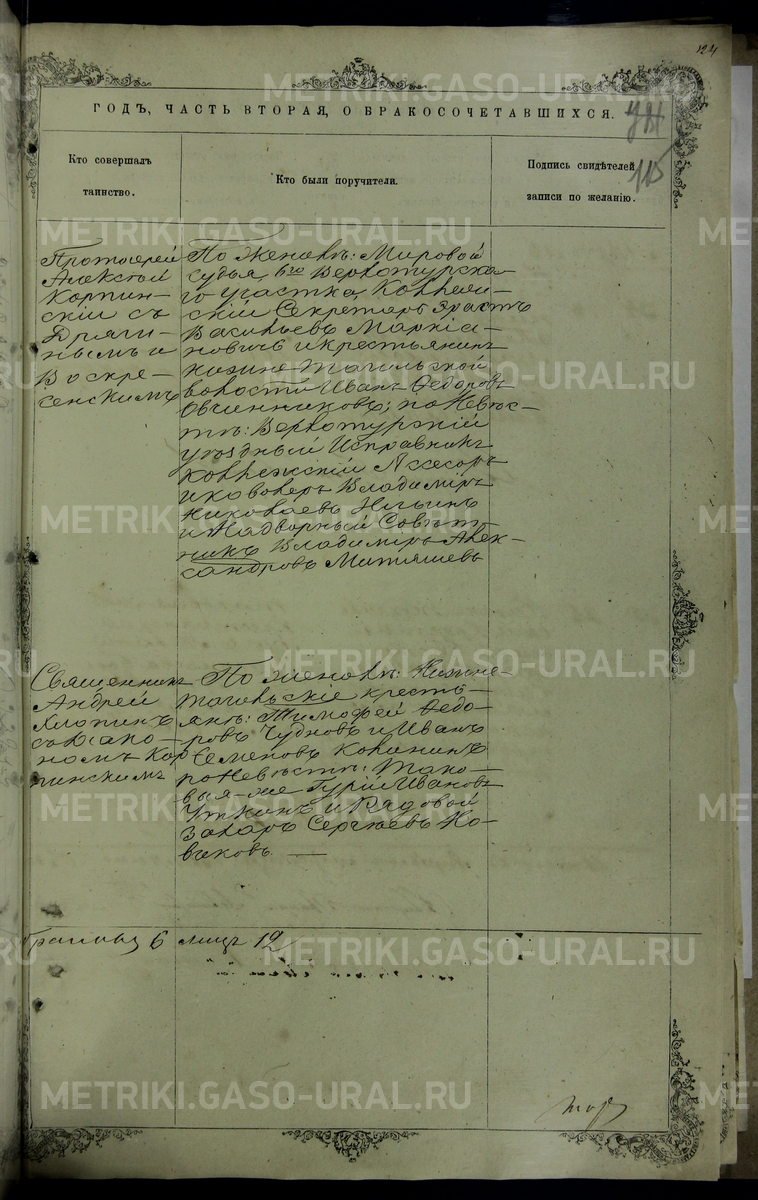 124
ГОДЪ, ЧАСТЬ ВТОРАЯ, О БРАКОСОЧЕТАВШИХСЯ.
115
Кто совершалъ
таинство.
Кто были поручители.
Подпись свидѣтелей
записи по желанію.
Протоіерей
Алексѣй
Карпин-
скій съ
Дряги-
нымъ и
Воскре-
сенскимъ
По Женихѣ: Мировой
Судья 6го Верхотурска-
го участка, Коллеж-
скій Секретарь Эрастъ
Васильевъ Маркіа-
новичъ и крестьянинъ
Нижне-Тагильской
волости Иванъ Ѳедоровъ
Овчинниковъ; по Невѣс-
тѣ: Верхотурскій
уѣздный Исправникъ
Коллежскій Ассесоръ
и кавалеръ Владиміръ
Николаевъ Ильинъ
и Надворный Совѣт-
никъ Владиміръ Алек-
сандровъ Митяшевъ
Священникъ
Андрей
Хлопинъ
съ діако-
номъ Кар
пинскимъ
По женихѣ: Нижне-
тагильскіе кресть-
яне: Тимофей Ѳедо-
ровъ Чудновъ и Иванъ
Семеновъ Калининъ
по Невѣстѣ: Тако-
вые-же Гурій Ивановъ
Уткинъ и Рядовой
Захаръ Сергѣевъ Но-
виковъ.
браковъ 6 лицъ 12
METRIKI.GASO-URAL.RU